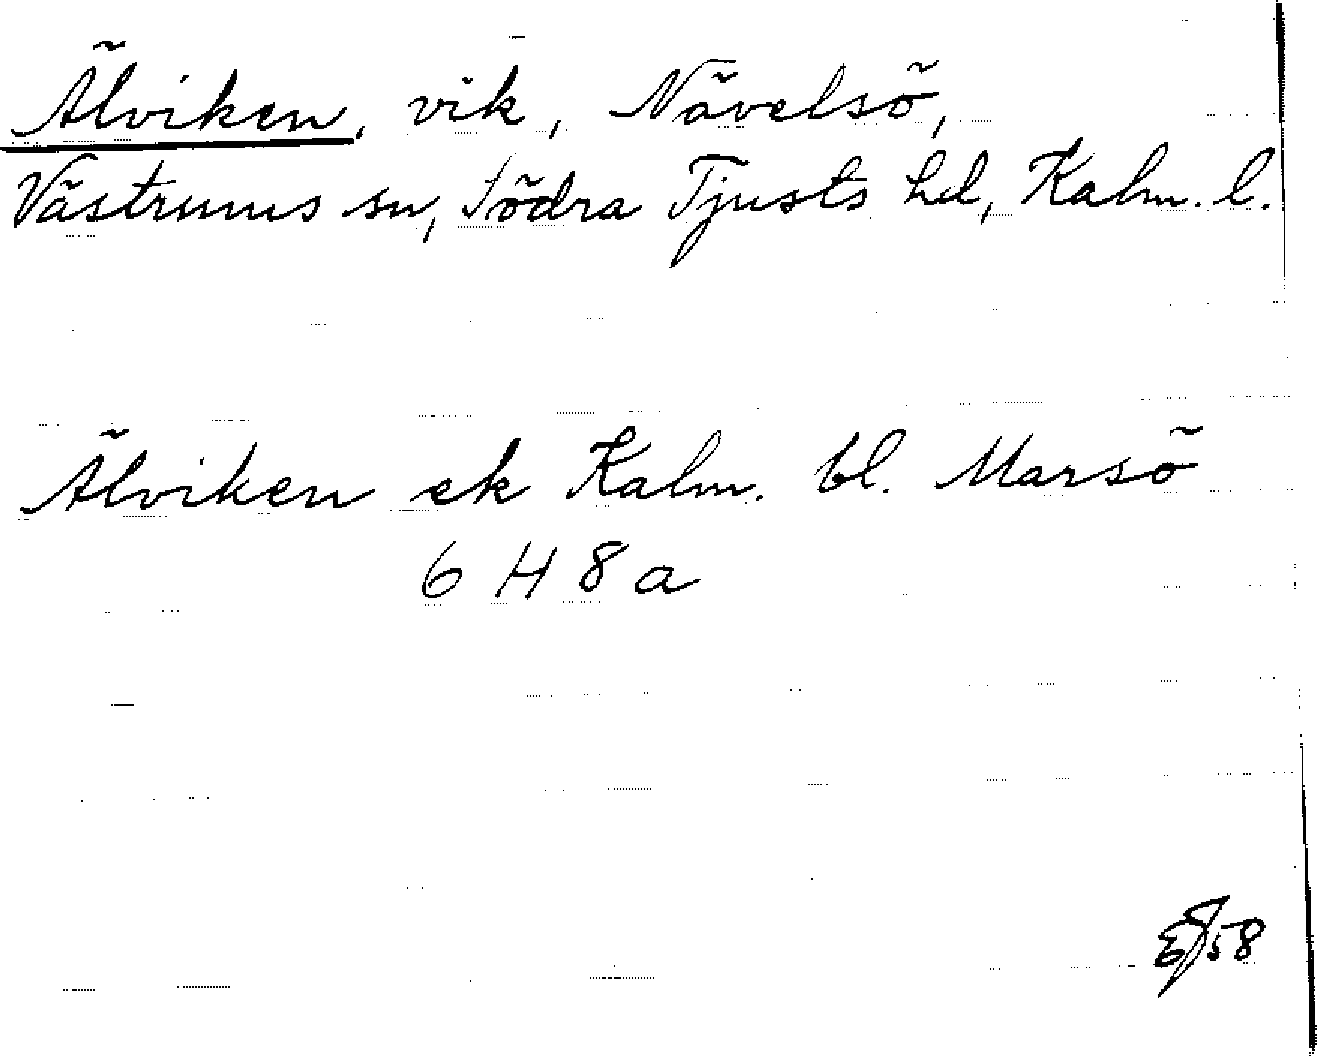 Älviken, vik, Nävelsö,
Västrums sn, Södra Tjusts hd, Kalm. l.
Älviken ek Kalm. bl. Marsö
6 H 8 a
58